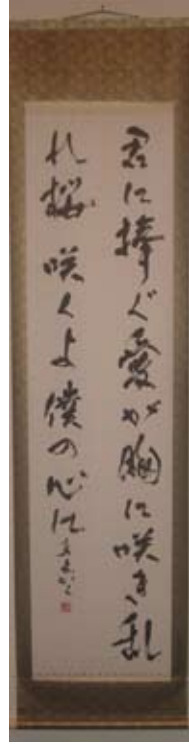 君に捧ぐ愛が胸に咲き乱
れ桜 咲くよ僕の心に